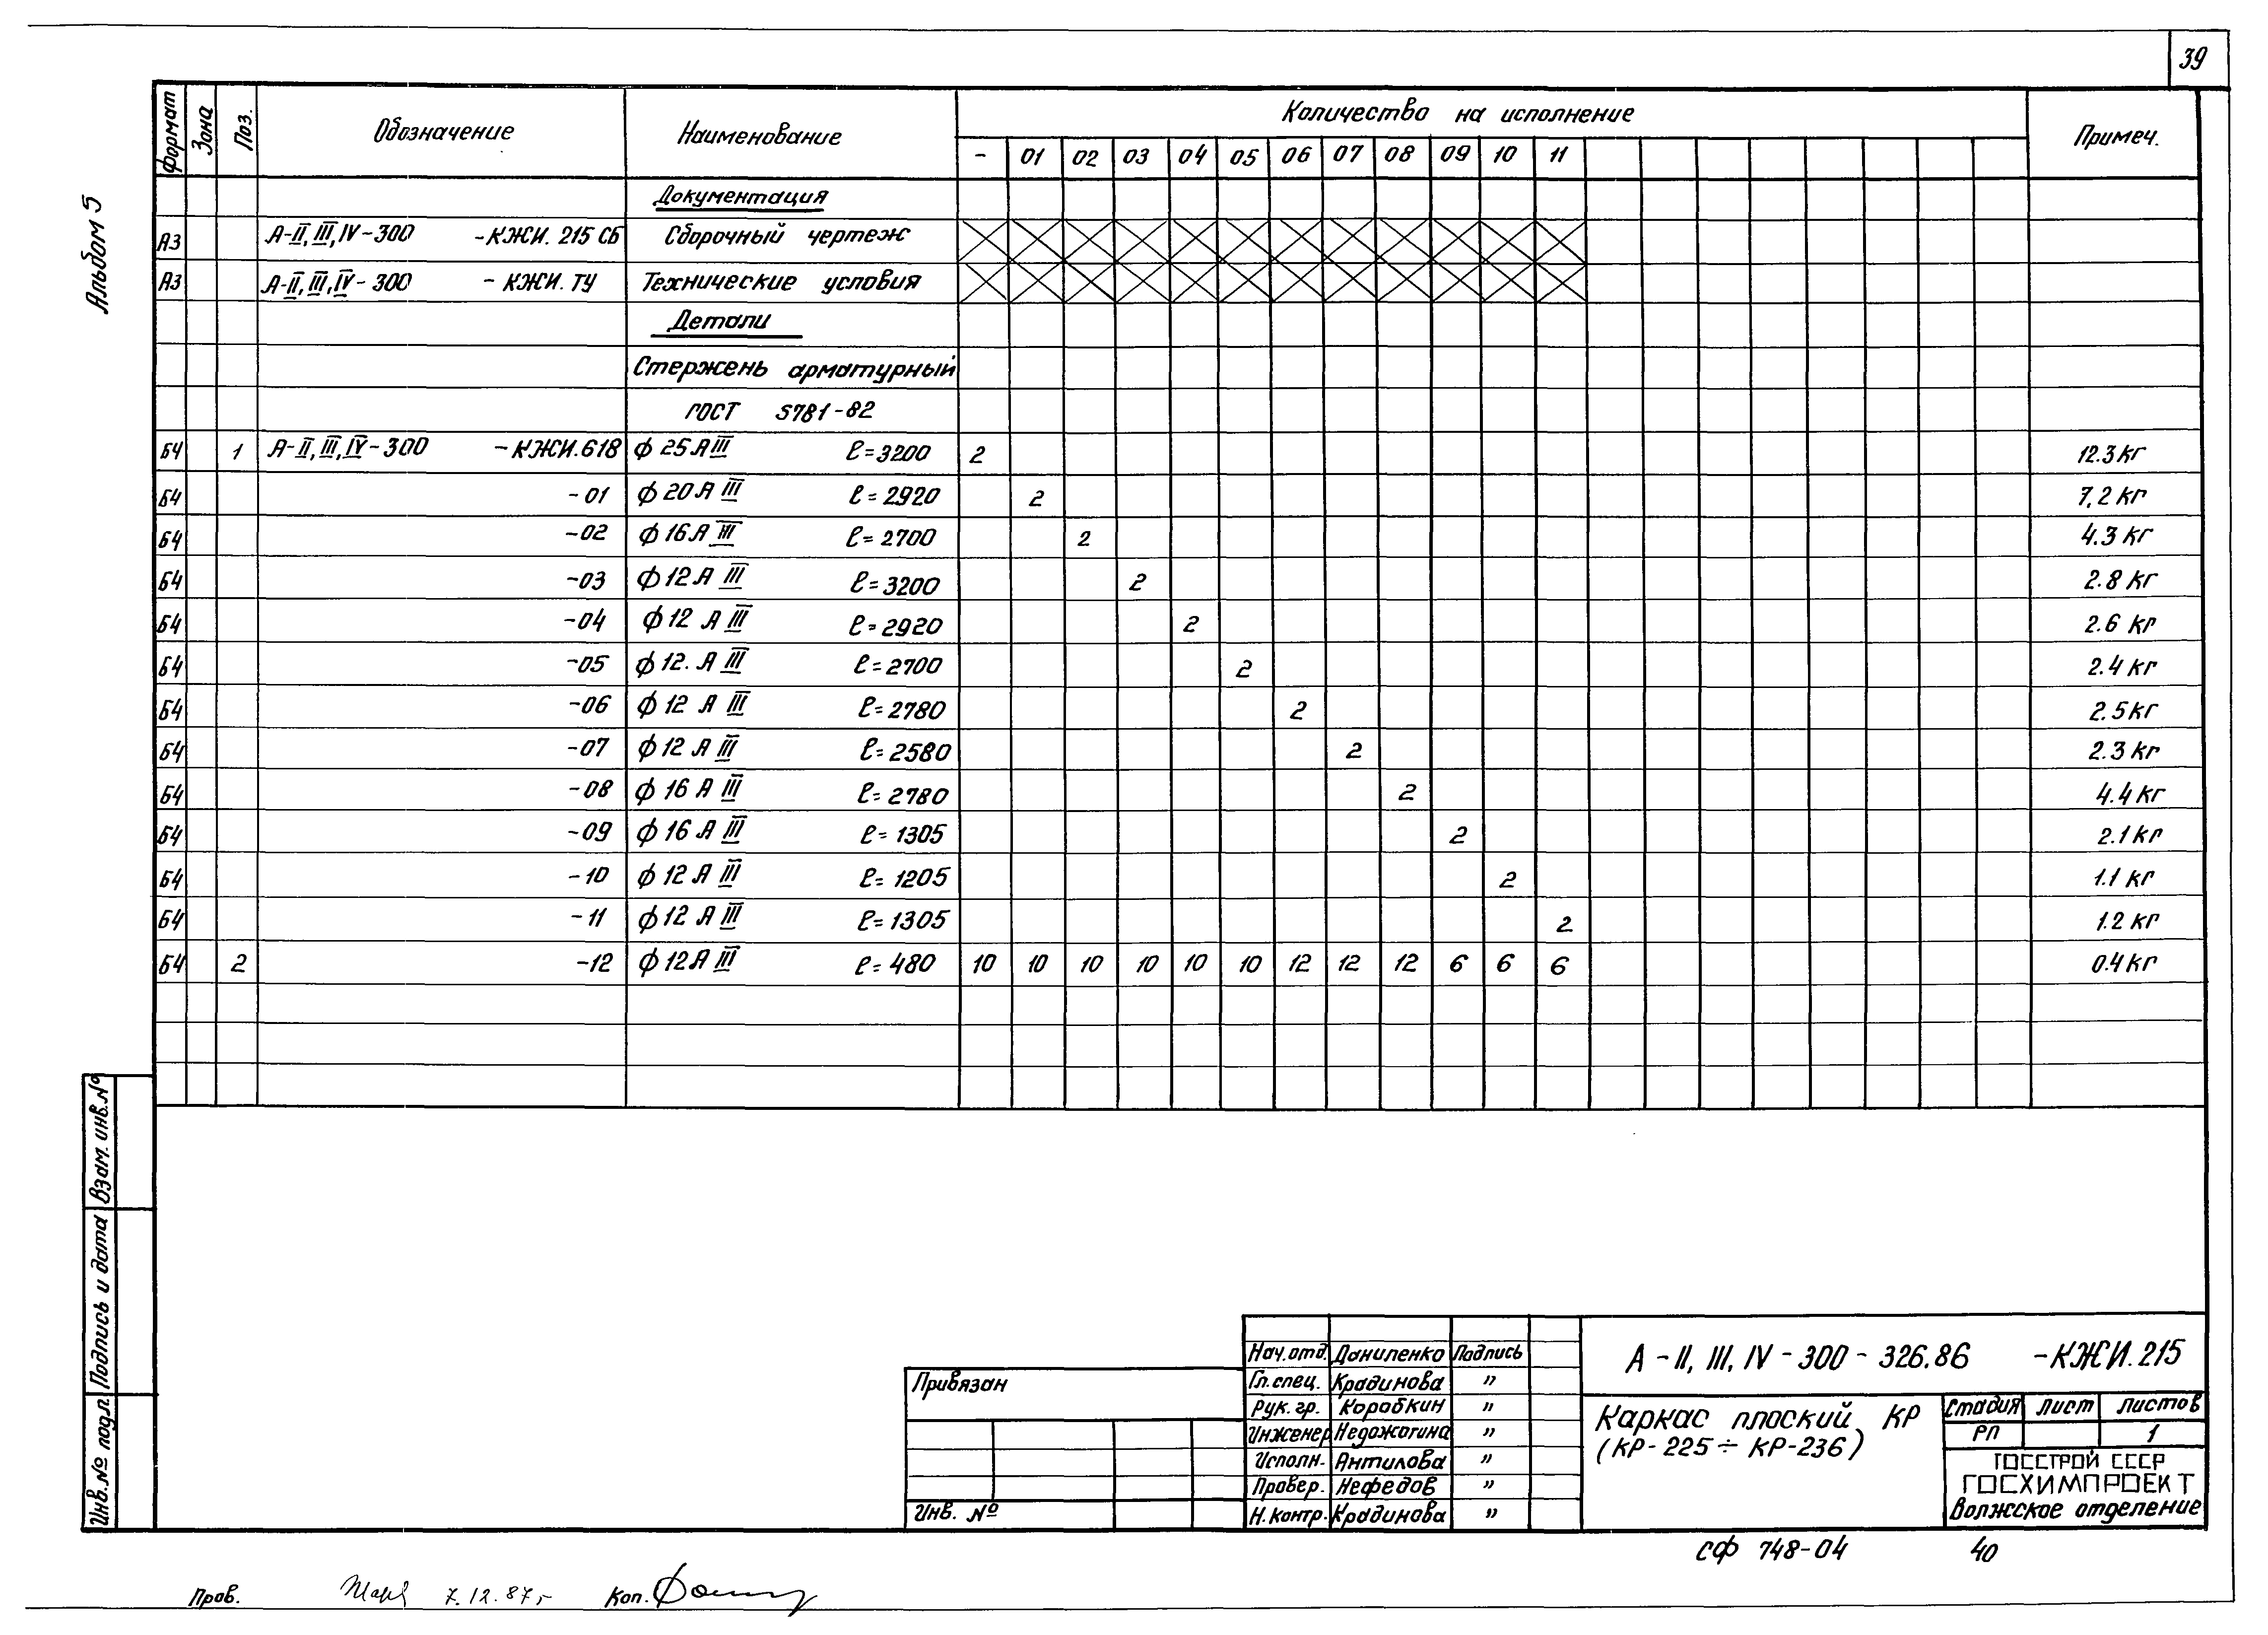 39
Альбом 5
Формат Зона Поз. Обозначение Наименование Количество на исполнение Примеч.
- 01 02 03 04 05 06 07 08 09 10 11
Документация
А3 А-II, III, IV-300 -КЖИ. 215 СБ Сборочный чертеж
А3 А-II, III, IV-300 -КЖИ. ТУ Технические условия
Детали
Стержень арматурный
ГОСТ 5781-82
Б4 1 А-II, III, IV-300 -КЖИ.618 ф 25 А III ℓ=3200 2 12.3 кг
Б4 -01 ф 20 А III ℓ=2920 2 7,2 кг
Б4 -02 ф 16 А III ℓ=2700 2 4.3 кг
Б4 -03 ф 12 А III ℓ=3200 2 2.8 кг
Б4 -04 ф 12 А III ℓ=2920 2 2.6 кг
Б4 -05 ф 12. А III ℓ=2700 2 2.4 кг
Б4 -06 ф 12 А III ℓ=2780 2 2.5 кг
Б4 -07 ф 12 А III ℓ=2580 2 2.3 кг
Б4 -08 ф 16 А III ℓ=2780 2 4.4 кг
Б4 -09 ф 16 А III ℓ=1305 2 2.1 кг
Б4 -10 ф 12 А III ℓ=1205 2 1.1 кг
Б4 -11 ф 12 А III ℓ=1305 2 1.2 кг
Б4 2 -12 ф 12 А III ℓ=480 10 10 10 10 10 10 12 12 12 6 6 6 0.4 кг
Взам. инв. №
Подпись и дата
Инв. № подл.
Привязан
Инв. №
Нач. отд. Даниленко Подпись
Гл. спец. Крадинова "
Рук. гр. Коробкин "
Инженер Недожогина "
Исполн. Антилова "
Провер. Нефедов "
Н. контр. Крадинова "
А - II, III, IV - 300 - 326.86 -КЖИ. 215
Каркас плоский КР
(КР-225 ÷ КР-236)
Стадия Лист Листов
РП 1
ГОССТРОЙ СССР
ГОСХИМПРОЕКТ
Волжское отделение
СФ 748-04 40
Пров. 7.12.87г Коп.